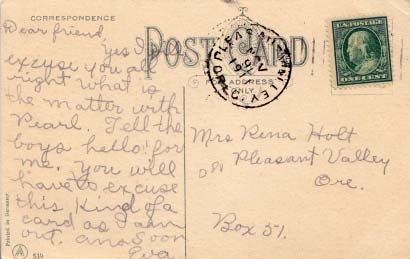 CORRESPONDENCE
Dear friend,
Yes
excuse you all
right what is
the matter with
Pearl. Tell the
boys hello for
me. You will
have to excuse
this Kind of a
card as I am
out. ans soon
Eva
POST CARD
ADDRESS
ONLY
PLEASANT VALLEY
U.S. POSTAGE
ONE CENT
Mrs Rena Holt
Pleasant Valley
Ore.
Box 51.
Printed in Germany
A